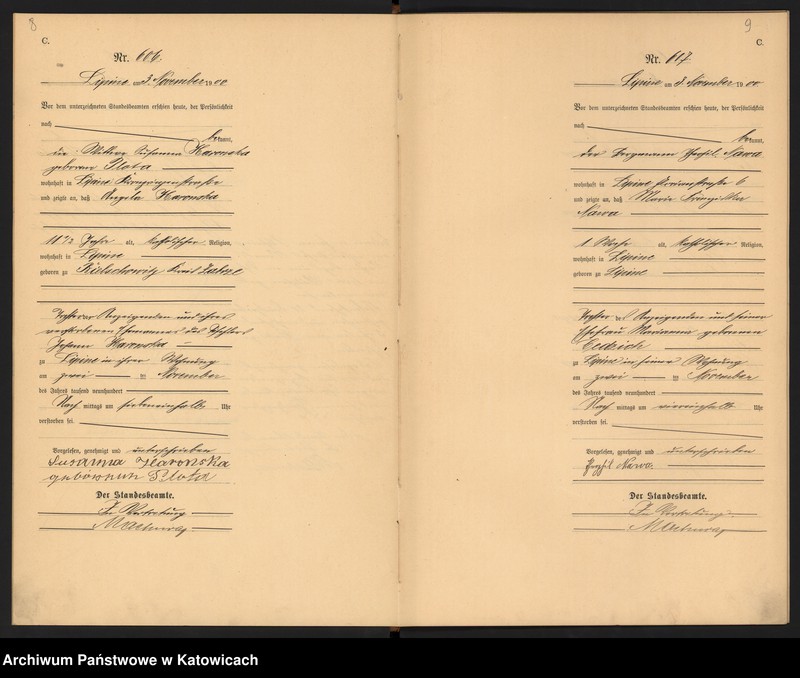 8
C.
Nr. 606.
Lipine am 3. November 1900
Vor dem unterzeichneten Standesbeamten erschien heute, der Persönlichkeit
nach
bekannt,
die Wittwe Susanna Hawronska
geborene Plota
wohnhaft in Lipine
und zeigte an, daß Angela Hawronska
18 1/2 Jahr alt, katholischer Religion,
wohnhaft in Lipine
geboren zu Kreis Zabrze
Tochter der Anzeigenden und ihres
verstorbenen Ehemannes des
Johann Hawronska
zu Lipine in ihrer Wohnung
am zwei ten November
des Jahres tausend neunhundert
Nach mittags um siebeneinhalb Uhr
verstorben sei.
Vorgelesen, genehmigt und unterschrieben
Susanna Hawronska
Plota
Der Standesbeamte.
In Vertretung
9
C.
Nr. 607
Lipine am 3. November 1900.
Vor dem unterzeichneten Standesbeamten erschien heute, der Persönlichkeit
nach
bekannt,
der Bergmann Nawa
wohnhaft in Lipine 6
und zeigte an, daß Marie
Nawa
1 Woche alt, katholischer Religion,
wohnhaft in Lipine
geboren zu Lipine
Tochter des Anzeigenden und seiner
Ehefrau Marianna geborenen
zu Lipine in seiner Wohnung
am zwei ten November
des Jahres tausend neunhundert
Nach mittags um viereinhalb Uhr
verstorben sei.
Vorgelesen, genehmigt und unterschrieben
Nawa.
Der Standesbeamte.
In Vertretung
Archiwum Państwowe w Katowicach